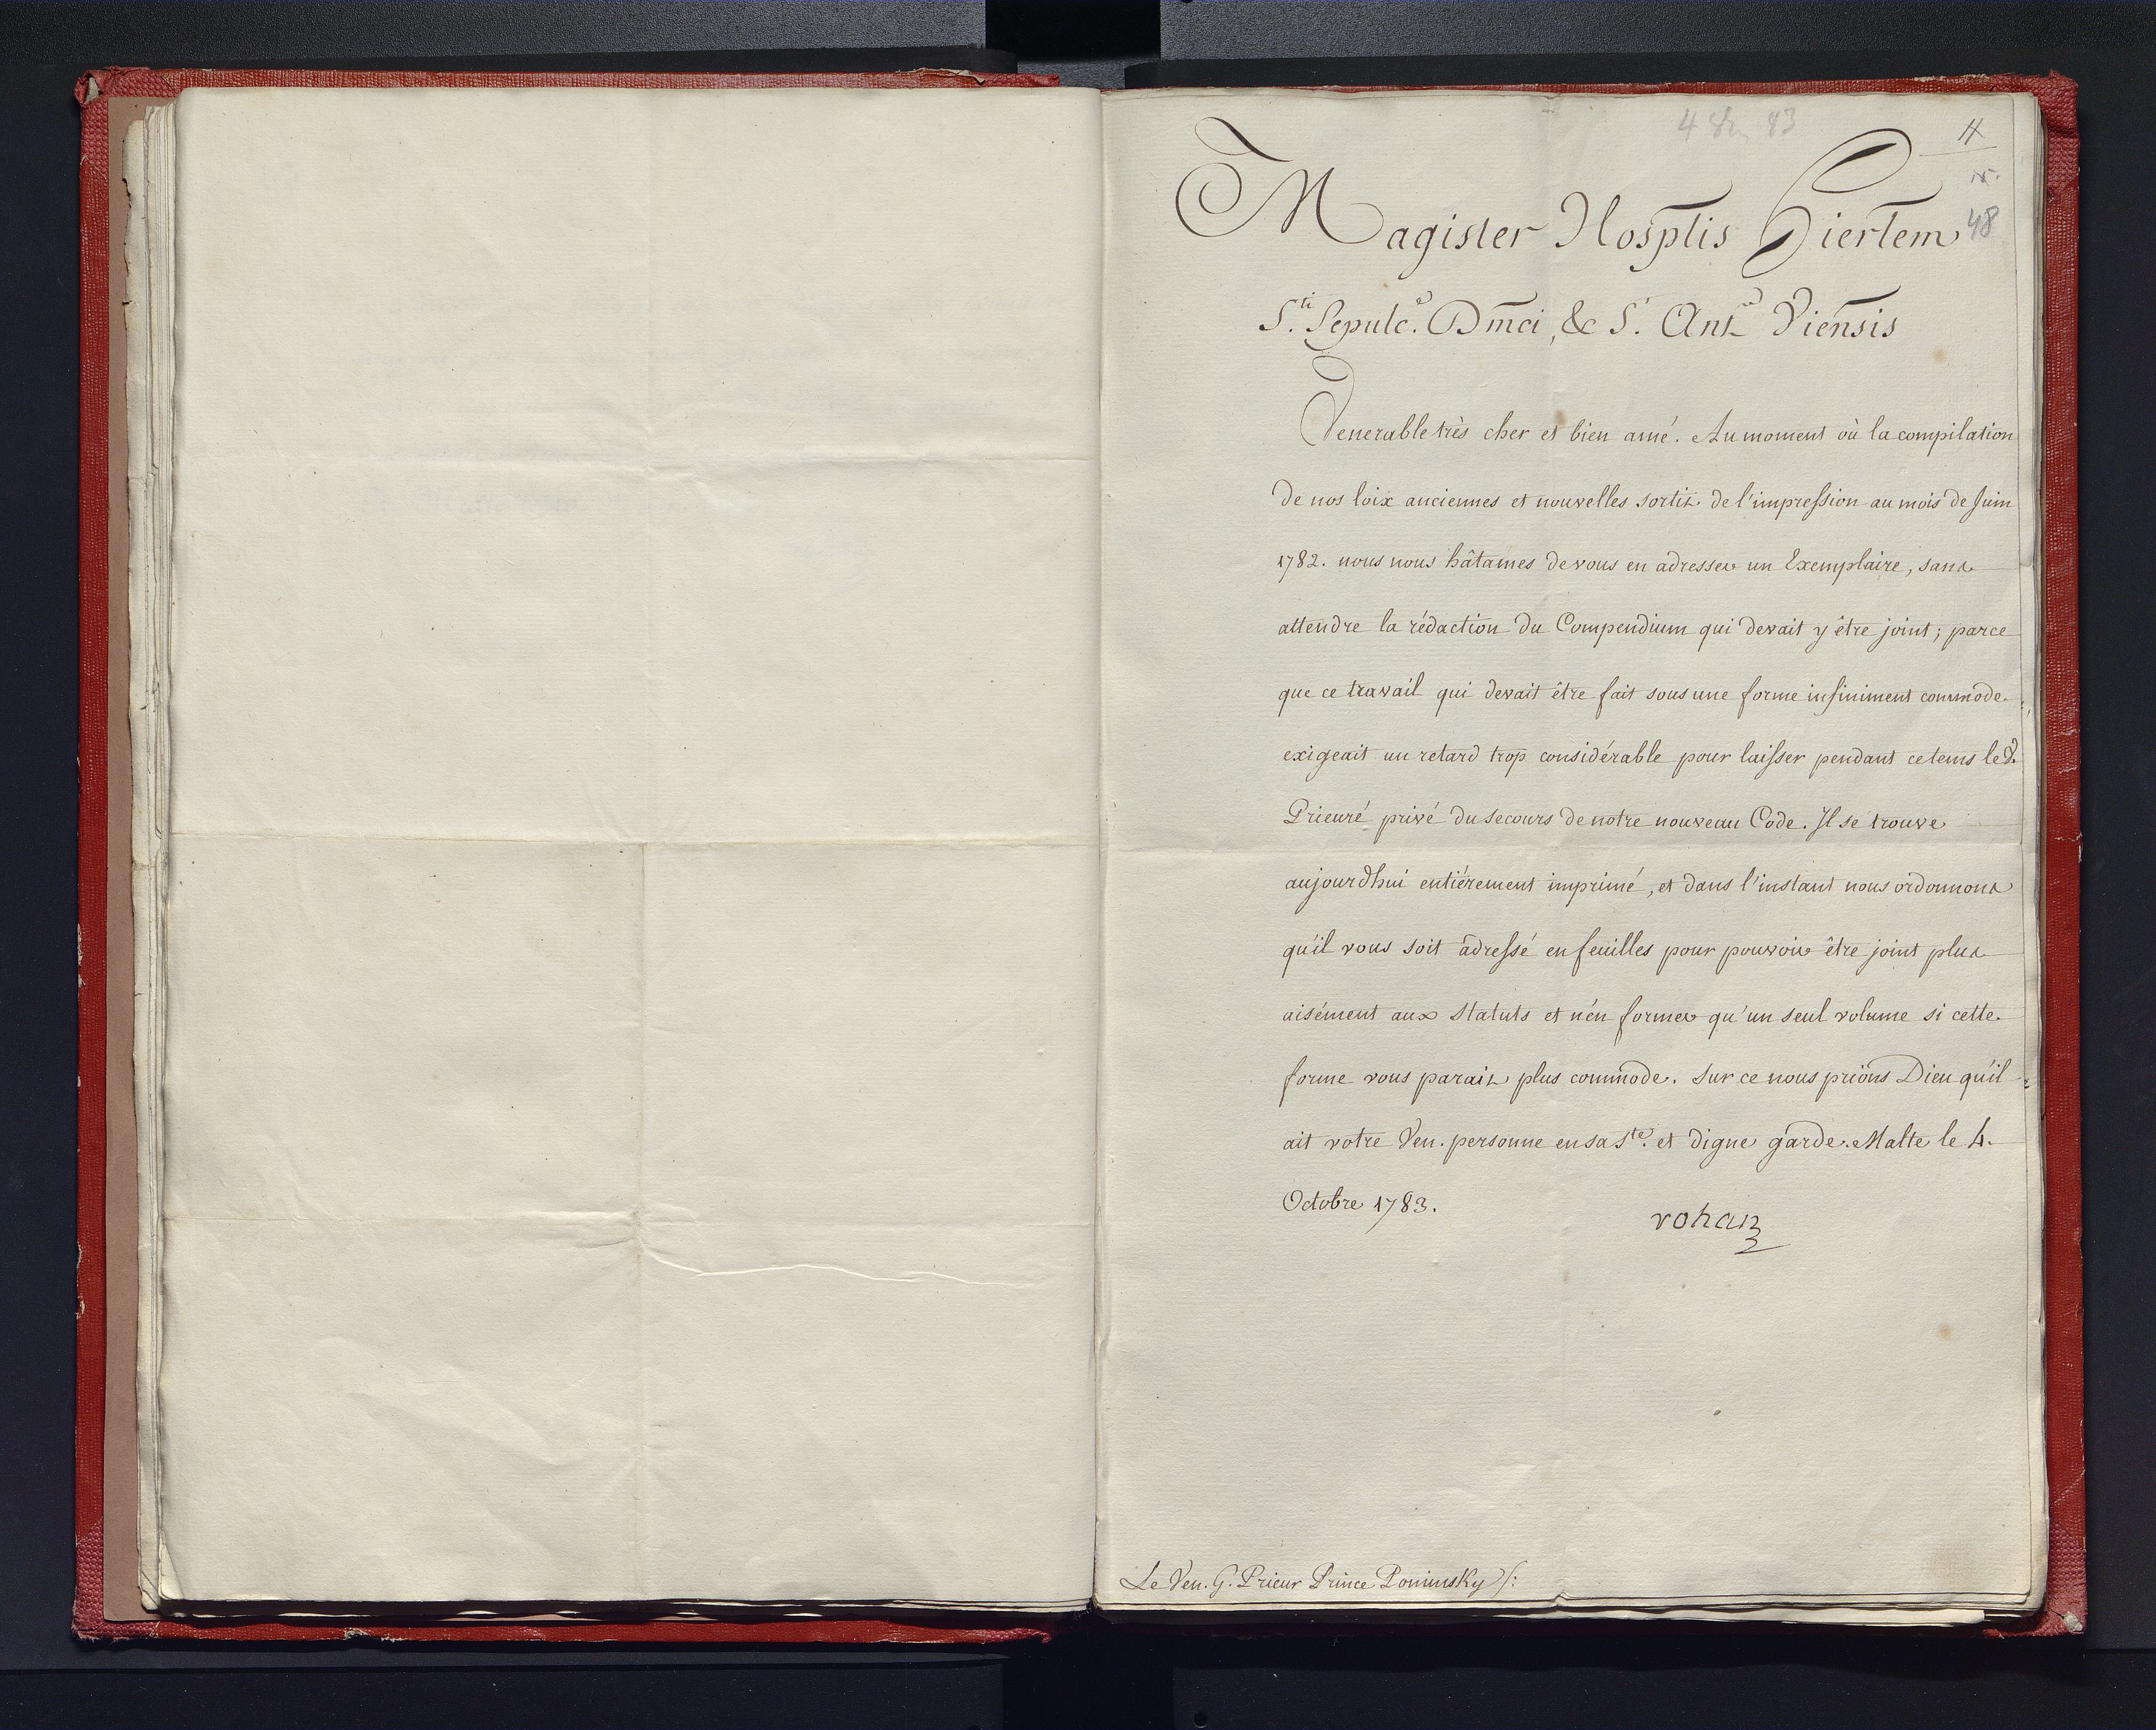 48
Magister Hosptis Hiertem
S.ti Sepulc. Dmci, & S. Ant. Viensis
Venerable très cher et bien amé. Au moment où la compilation
de nos loix anciennes et nouvelles sortit de l'impression au mois de Juin
1782. nous nous hâtames de vous en adresser un Exemplaire, sans
attendre la rédaction du Compendium qui devait y être joint; parce
que ce travail qui devait être fait sous une forme infiniment commode
exigeait un retard trop considérable pour laisser pendant ce tems le V.
Prieuré privé du secours de notre nouveau Code. Il se trouve
aujourdhui entiérement imprimé, et dans l'instant nous ordonnons
qu'il vous soit adressé en feuilles pour pouvoir être joint plus
aisément aux Statuts et n'en former qu'un seul volume si cette
forme vous parait plus commode. Sur ce nous prions Dieu qu'il
ait votre Ven. personne en sa Ste. et digne garde. Malte le 4.
Octobre 1783.
rohan
Le Ven. G. Prieur Prince Poninsky